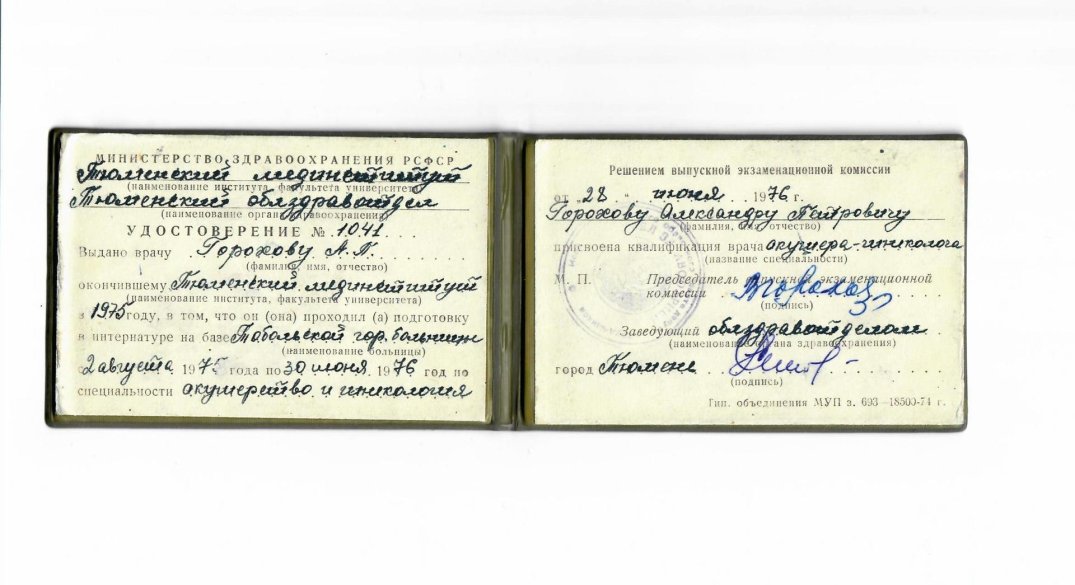 МИНИСТЕРСТВО ЗДРАВООХРАНЕНИЯ РСФСР
Тюменский мединститут
(наименование института, факультета университета)
Тюменский облздравотдел
(наименование органа здравоохранения)
УДОСТОВЕРЕНИЕ № 1041
Выдано врачу Горохову А.П.
(фамилия, имя, отчество)
окончившему Тюменский мединститут
(наименование института, факультета университета)
в 1975 году, в том, что он (она) проходил (а) подготовку
в интернатуре на базе Тобольской гор. больницы
(наименование больницы)
с 2 августа 1975 года по 30 июня 1976 год по
специальности акушерство и гинекология
Решением выпускной экзаменационной комиссии
от 28 июня 1976 г.
Горохову Александру Петровичу
(фамилия, имя, отчество)
присвоена квалификация врача акушера-гинеколога
(название специальности)
М. П. Председатель выпускной экзаменационной
комиссии
(подпись)
Заведующий облздравотделом
(наименование органа здравоохранения)
город Тюмень
(подпись)
Тип. объединения МУП з. 693—18500-74 г.